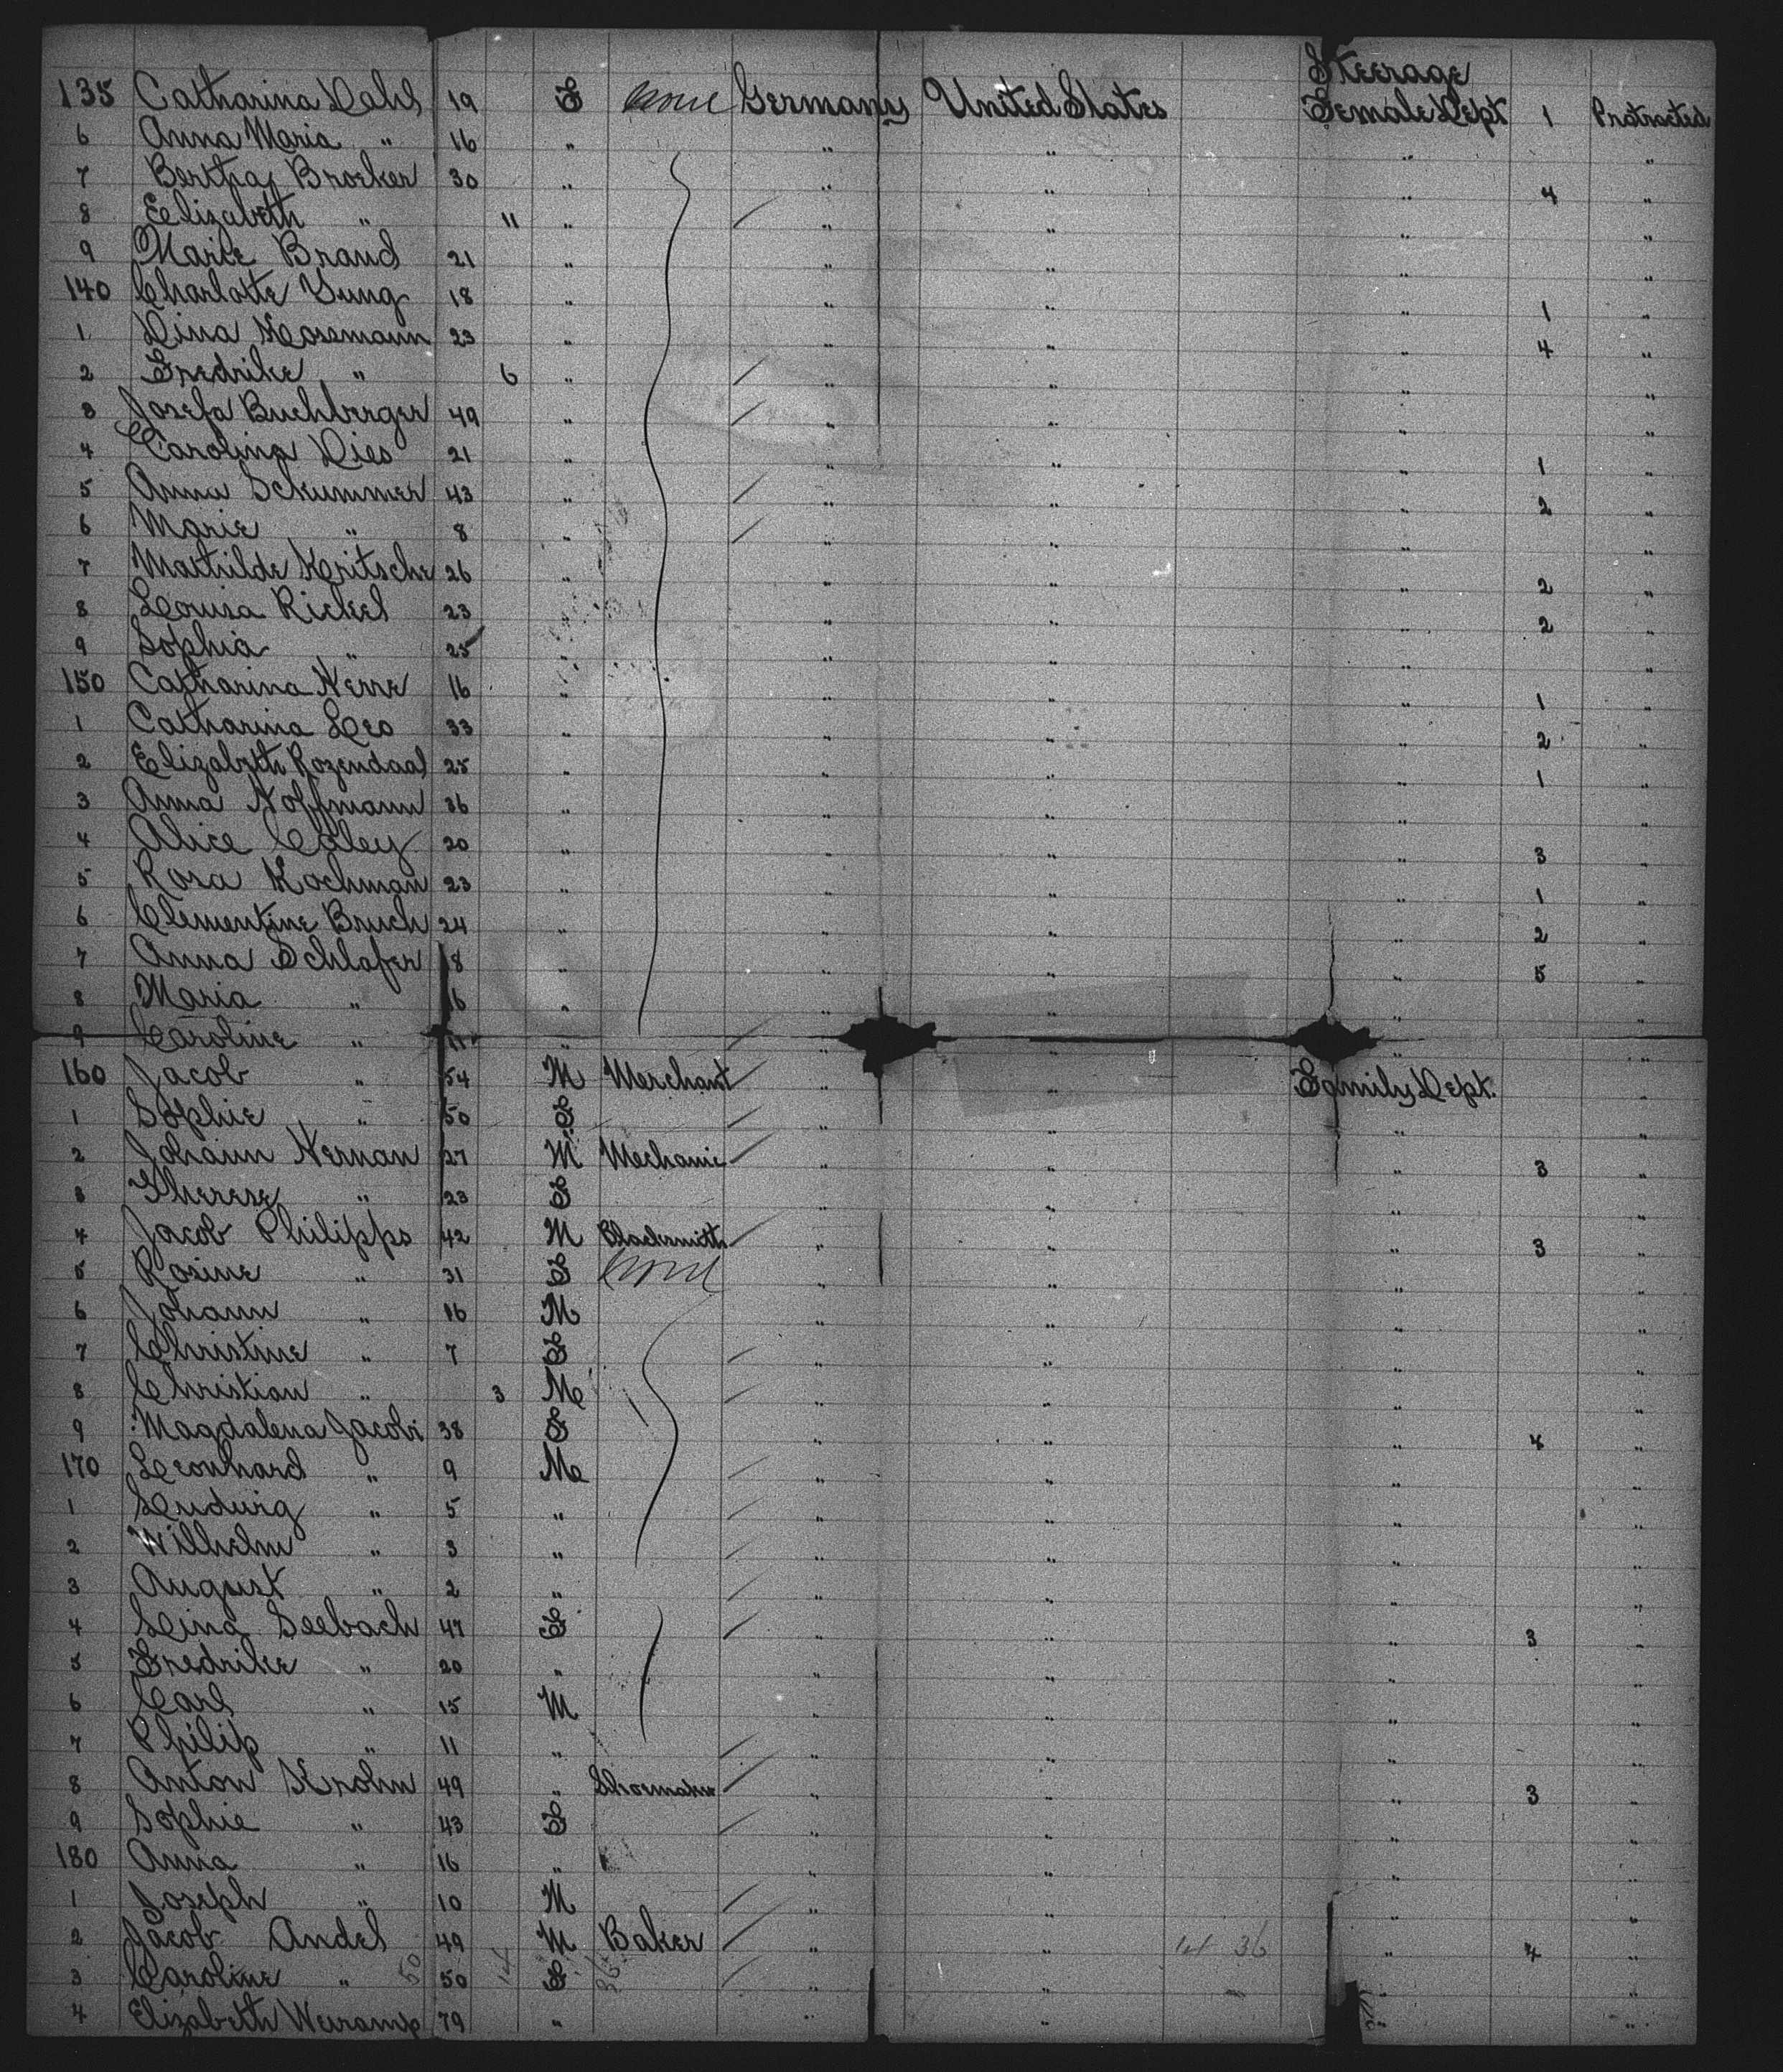 Steerage
135 Catharina Dahl 19 F none Germany United States Female Dept 1 Protracted
6 Anna Maria " 16 " " " " "
7 Bertha Broeker 30 " " " " 4 "
8 Elizabeth " 11 " " " " "
9 Marie Brand 21 " " " " "
140 Charlotte Jung 18 " " " " 1 "
1 Lina Hosemann 23 " " " " 4 "
2 Fredrike " 6 " " " " "
3 Josefa Buchberger 49 " " " " "
4 Carolina Dies 21 " " " " 1 "
5 Anna Schummer 43 " " " " 2 "
6 Marie " 8 " " " " "
7 Mathilde Kritsche 26 " " " " 2 "
8 Louisa Rickel 23 " " " " 2 "
9 Sophia " 25 " " " " "
150 Catharina Herre 16 " " " " 1 "
1 Catharina Leo 33 " " " " 2 "
2 Elizabeth Rozendaal 25 " " " " 1 "
3 Anna Hoffmann 36 " " " "
4 Alice Coley 20 " " " " 3 "
5 Rosa Kochman 23 " " " " 1 "
6 Clementine Bruch 24 " " " " 2 "
7 Anna Schlafer 18 " " " " 5 "
8 Maria " 16 " " " " "
9 Caroline " 11 " " " "
160 Jacob " 54 M Merchant " " Family Dept. "
1 Sophie " 50 F " " " "
2 Johann Herman 27 M Mechanic " " " 3 "
3 Therese " 23 F " " " "
4 Jacob Philipps 42 M Blacksmith " " " 3 "
5 Rosine " 31 F none " " " "
6 Johann " 16 M " " " "
7 Christine " 7 F " " " "
8 Christian " 3 M " " " "
9 Magdalena Jacobi 38 F " " " 4 "
170 Leonhard " 9 M " " " "
1 Ludwig " 5 " " " " "
2 Wilhelm " 3 " " " " "
3 August " 2 " " " " "
4 Lina Seebach 47 F " " " 3 "
5 Fredrike " 20 " " " " "
6 Carl " 15 M " " " "
7 Philip " 11 " " " " "
8 Anton Krohn 49 " Shoemaker " " " 3 "
9 Sophie " 43 F " " " "
180 Anna " 16 " " " " "
1 Joseph " 10 M " " " "
2 Jacob Andel 49 M Baker " " 14 36 " 4 "
3 Caroline " 50 50 14 F 36 " " " "
4 Elizabeth 79 " " " " "